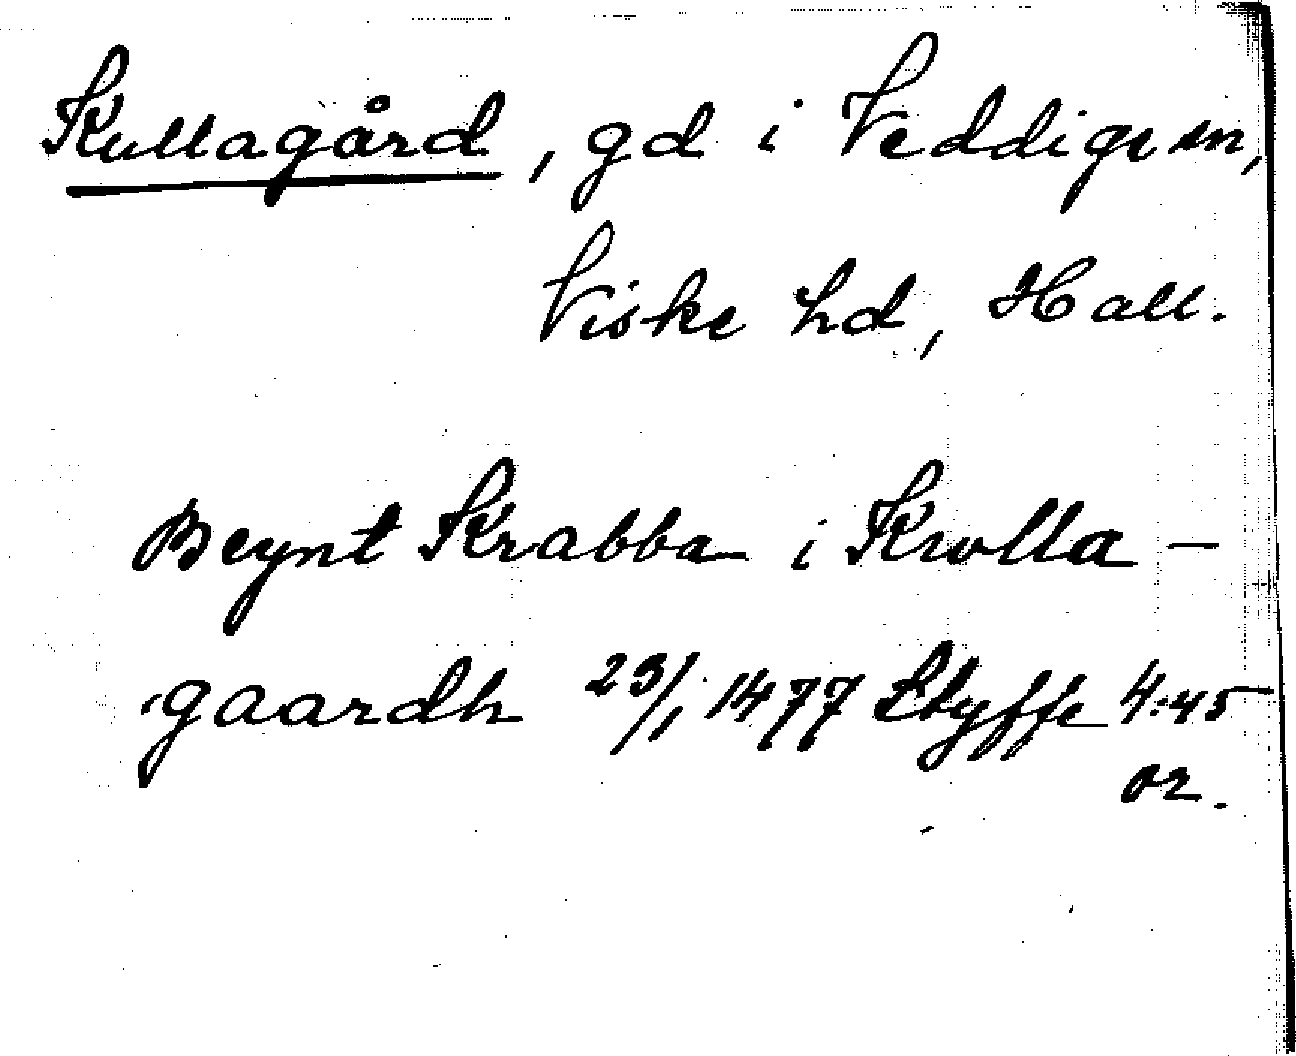 Kullagård, gd i Veddige sn,
Viske hd, Hall.
Beynt Krabba i Krolla-
gaardh 23/1 1477 Styffe 4:45
or.